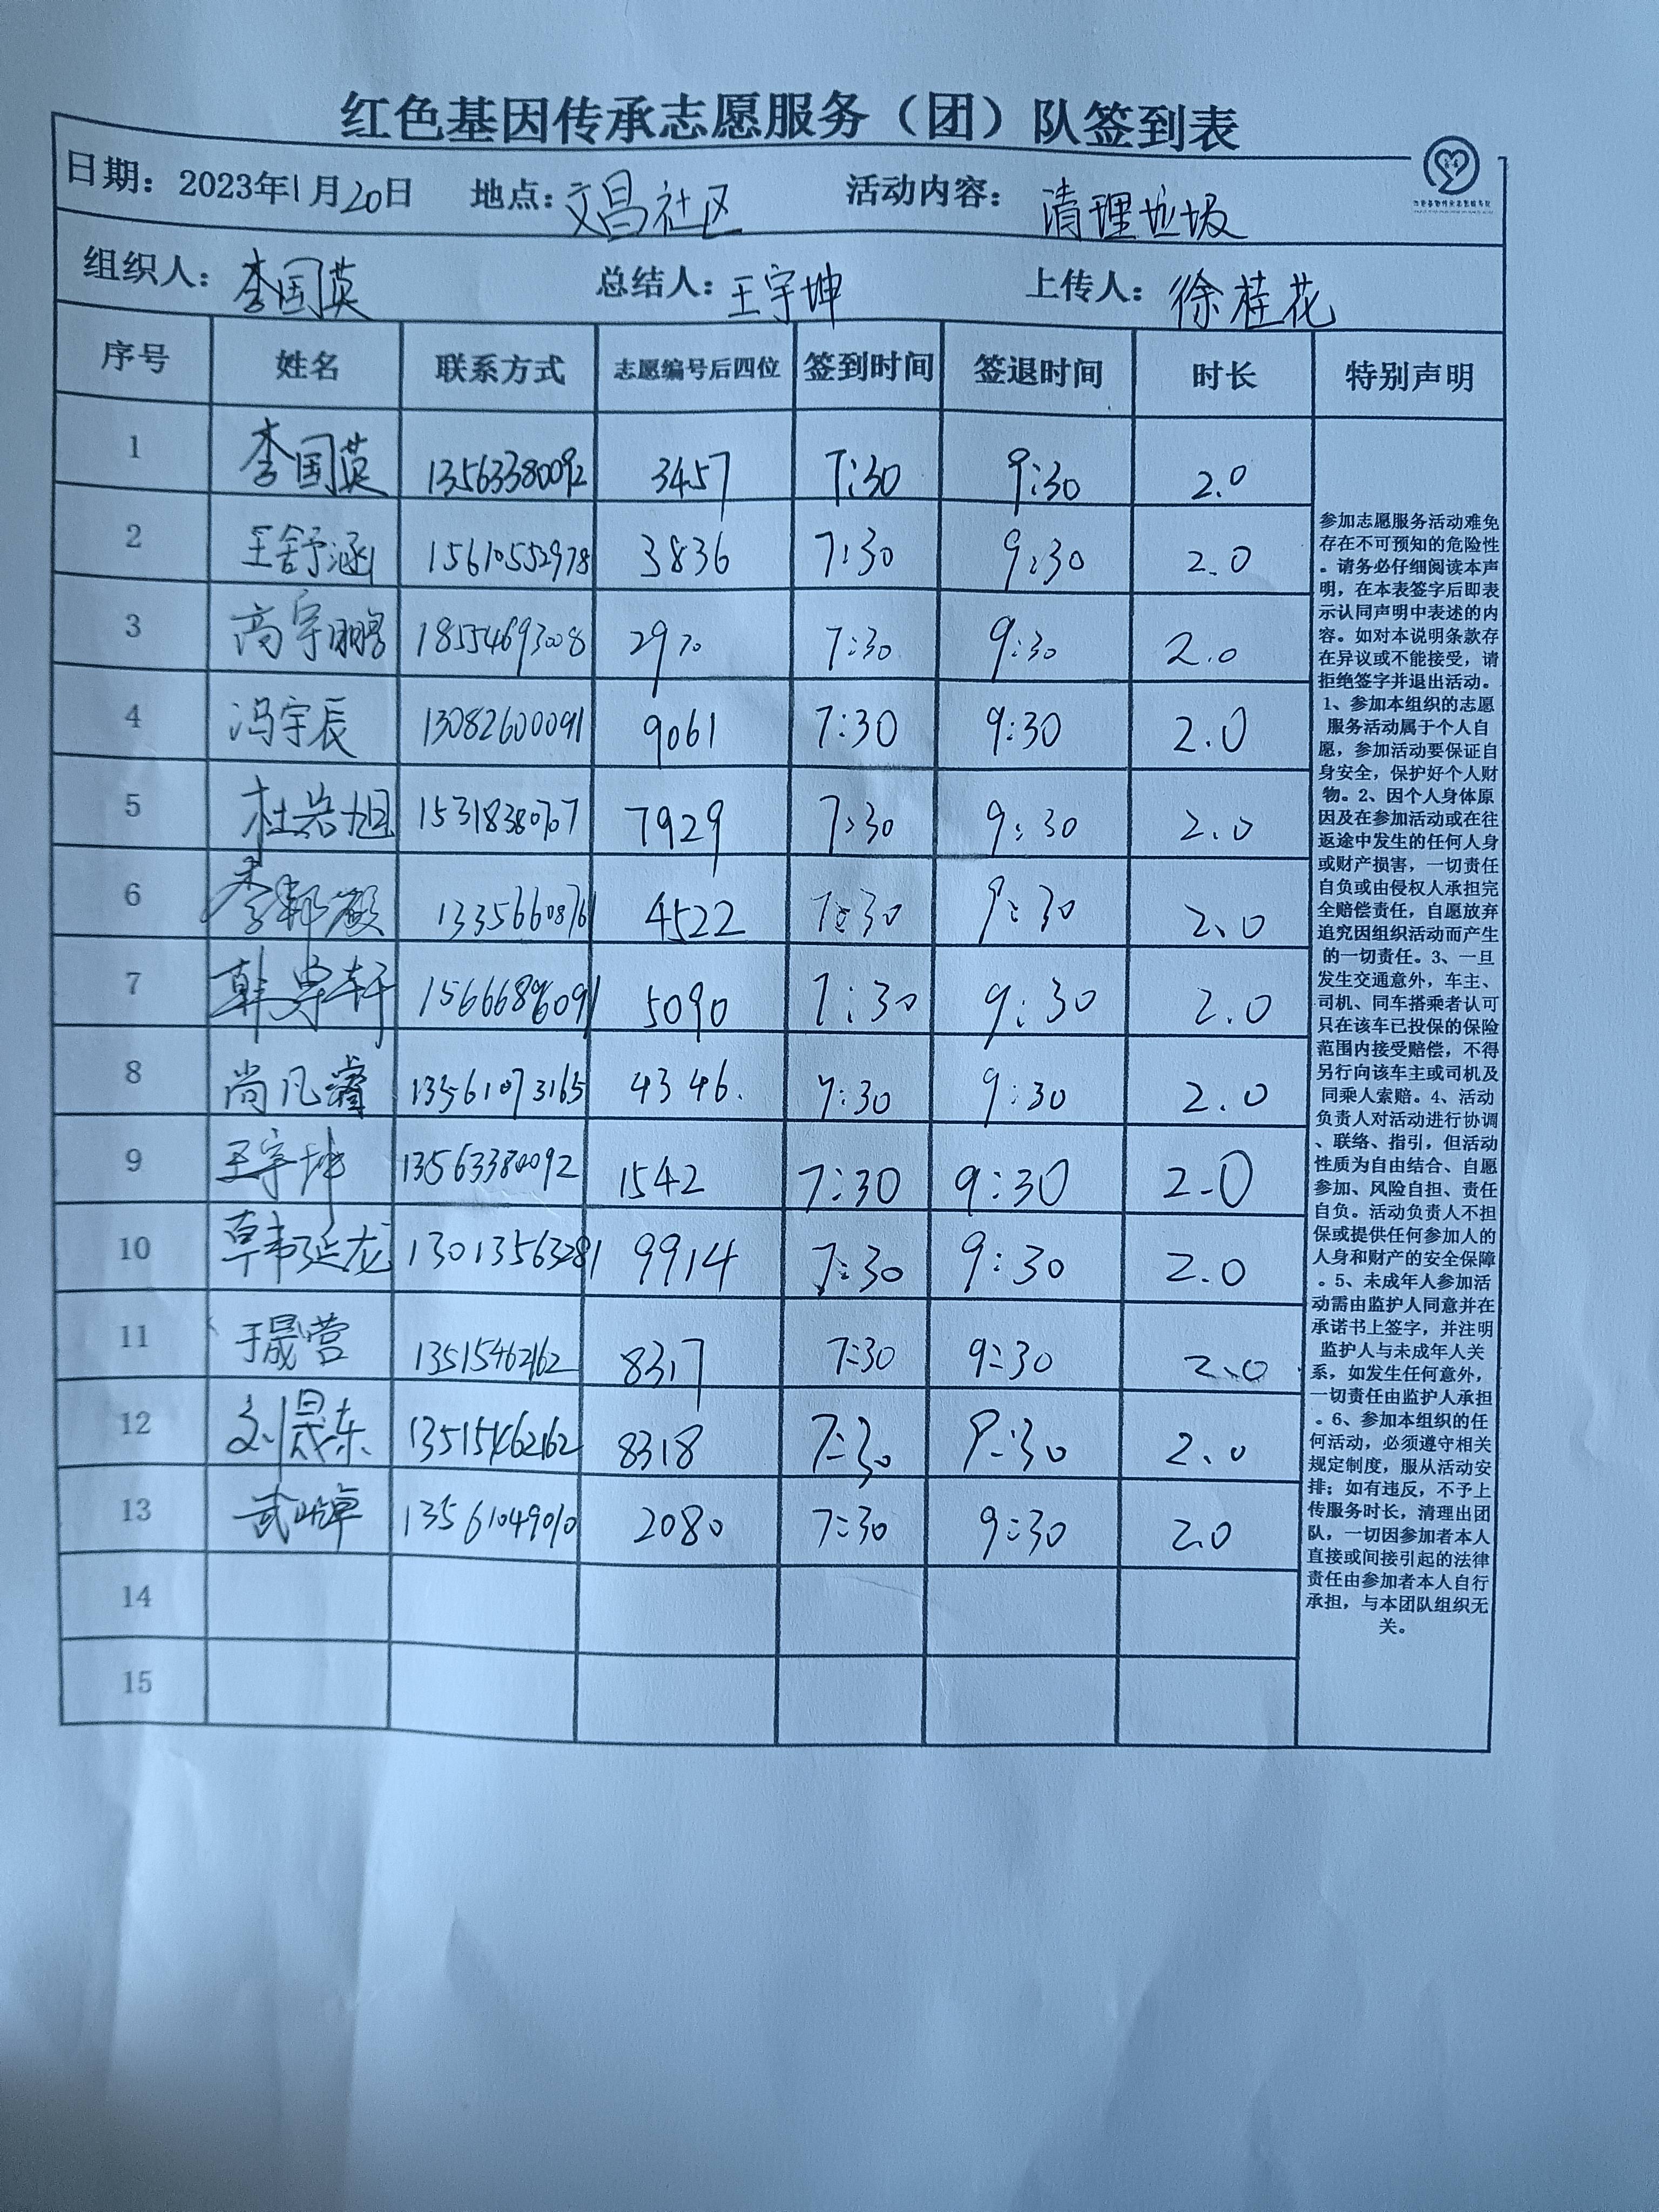 红色基因传承志愿服务（团）队签到表
日期：2023年1月20日 地点：文昌社区 活动内容：清理垃圾
组织人：李国英 总结人：王宇坤 上传人：徐桂花
序号 姓名 联系方式 志愿编号后四位 签到时间 签退时间 时长 特别声明
1 李国英 13563380092 3457 7:30 9:30 2.0
2 王舒涵 15610552978 3836 7:30 9:30 2.0
3 高宇鹏 18554693008 2970 7:30 9:30 2.0
4 冯宇辰 13082600091 9061 7:30 9:30 2.0
5 杜岩旭 7929 7:30 9:30 2.0
6 李 13356608761 4522 7:30 9:30 2.0
7 韩 轩 15666896091 5090 7:30 9:30 2.0
8 尚凡睿 13561073165 4346. 7:30 9:30 2.0
9 王宇坤 13563380092 1542 7:30 9:30 2.0
10 延龙 13013563281 9914 7:30 9:30 2.0
11 于晟营 13515462162 8317 7:30 9:30 2.0
12 刘晟东 13515462162 8318 7:30 9:30 2.0
13 武 卓 13561049010 2080 7:30 9:30 2.0
14
15
参加志愿服务活动难免
存在不可预知的危险性
。请务必仔细阅读本声
明，在本表签字后即表
示认同声明中表述的内
容。如对本说明条款存
在异议或不能接受，请
拒绝签字并退出活动。
1、参加本组织的志愿
服务活动属于个人自
愿，参加活动要保证自
身安全，保护好个人财
物。2、因个人身体原
因及在参加活动或在往
返途中发生的任何人身
或财产损害，一切责任
自负或由侵权人承担完
全赔偿责任，自愿放弃
追究因组织活动而产生
的一切责任。3、一旦
发生交通意外，车主、
司机、同车搭乘者认可
只在该车已投保的保险
范围内接受赔偿，不得
另行向该车主或司机及
同乘人索赔。4、活动
负责人对活动进行协调
、联络、指引，但活动
性质为自由结合、自愿
参加、风险自担、责任
自负。活动负责人不担
保或提供任何参加人的
人身和财产的安全保障
。5、未成年人参加活
动需由监护人同意并在
承诺书上签字，并注明
监护人与未成年人关
系，如发生任何意外，
一切责任由监护人承担
。6、参加本组织的任
何活动，必须遵守相关
规定制度，服从活动安
排；如有违反，不予上
传服务时长，清理出团
队，一切因参加者本人
直接或间接引起的法律
责任由参加者本人自行
承担，与本团队组织无
关。